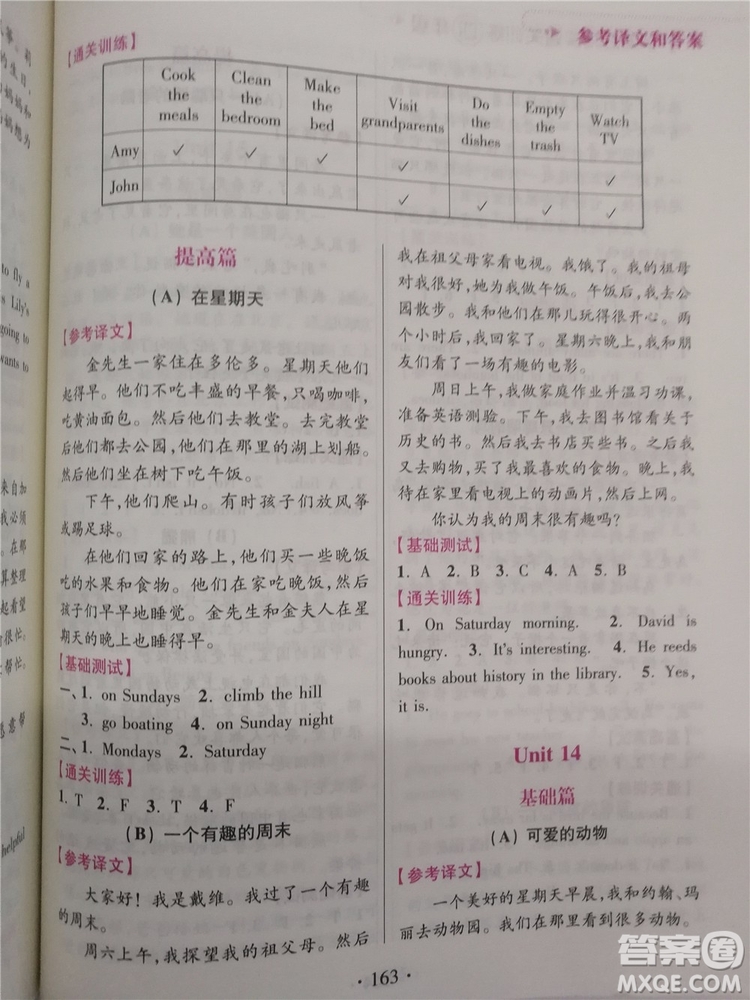 参考译文和答案
【通关训练】
Cook the meals Clean the bedroom Make the bed Visit grandparents Do the dishes Empty the trash Watch TV
Amy ✓ ✓ ✓ ✓
John ✓ ✓ ✓ ✓
提高篇
(A) 在星期天
【参考译文】
金先生一家住在多伦多。星期天他们
起得早。他们不吃丰盛的早餐，只喝咖啡，
吃黄油面包。然后他们去教堂。去完教堂
他们都去公园，他们在那里的湖上划船。
然后他们坐在树下吃午饭。
下午，他们爬山。有时孩子们放风筝
或踢足球。
在他们回家的路上，他们买一些晚饭
吃的水果和食物。他们在家吃晚饭，然后
孩子们早早地睡觉。金先生和金夫人在星
期天的晚上也睡得早。
【基础测试】
一、1. on Sundays 2. climb the hill
3. go boating 4. Sunday night
二、1. Mondays 2. Saturday
【通关训练】
1. T 2. F 3. T 4. F
(B) 一个有趣的周末
【参考译文】
大家好！我是戴维。我过了一个有趣
的周末。
周六上午，我探望我的祖父母。然后
我在祖父母家看电视。我饿了。我的祖母
对我很好，她为我做午饭。午饭后，我去公
园散步。我和他们在那儿玩得很开心。两
个小时后，我到达我家。星期六晚上，我和朋
友们看了一场有趣的电影。
周日上午，我做家庭作业并温习功课，
准备英语测验。下午，我去图书馆看关于
历史的书。然后我去书店买些书。之后，我
又去购物，买了我最喜欢的食物。晚上，我
待在家里看电视上的动画片，玩电脑游戏。
你认为我的周末很有趣吗？
【基础测试】
1. A 2. B 3. C 4. A 5. B
【通关训练】
1. On Saturday morning. 2. David is
hungry. 3. It's interesting. 4. He reeds
books about history in the library. 5. Yes,
it is.
Unit 14
基础篇
(A) 可爱的动物
【参考译文】
一个美好的星期天早晨，我和约翰、玛
丽去动物园。今天很热。我们在那里看了很
· 163 ·
答案圈
MXQE.COM
to fly a
s Lily's
going to
wants to
helpful